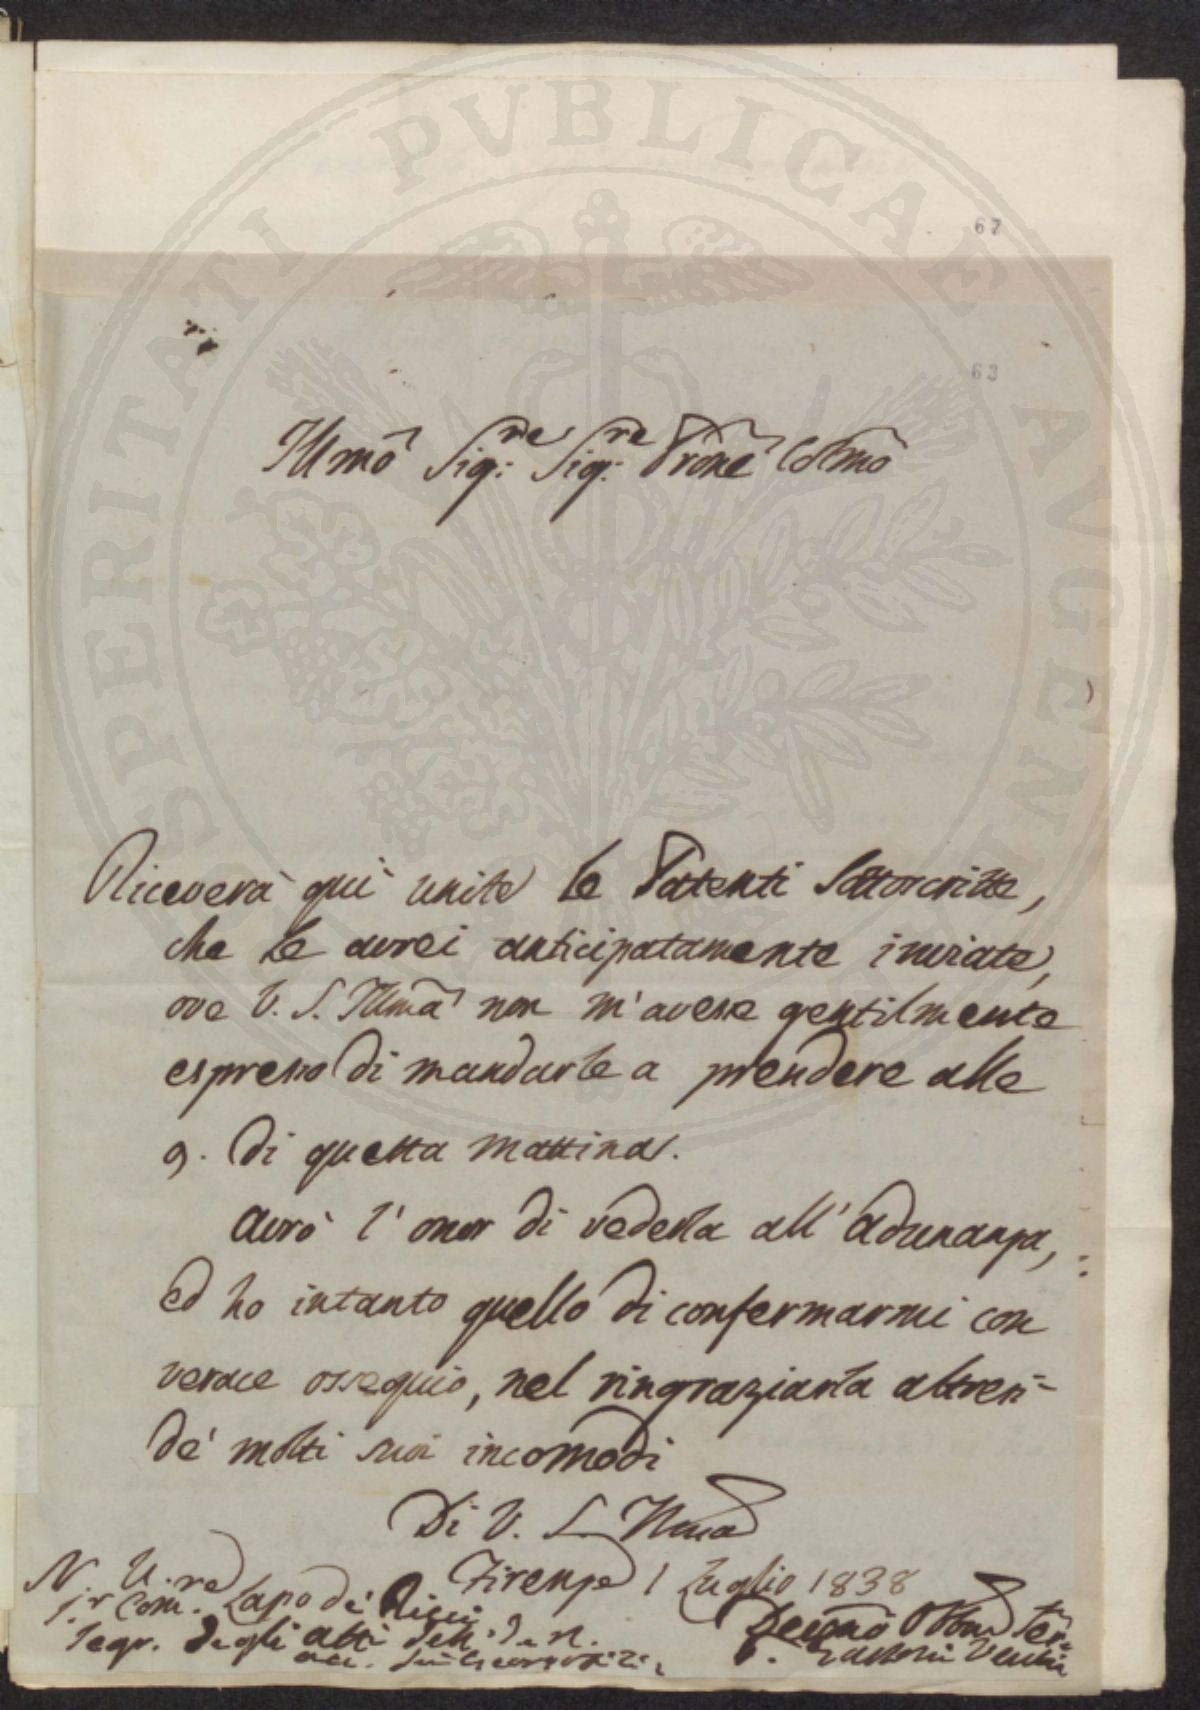 PROSPERITATI PVBLICAE AVGENDAE
67
63
Illmo Sig:re Sig:re Prone Colmo
Riceverà quì unite le Patenti Sottoscritte,
che le avrei anticipatamente inviate,
ove V. S. Illma non m'avesse gentilmente
espresso di mandarle a prendere alle
9. di questa mattina.
Avrò l'onor di vederla all'Adunanza,
ed ho intanto quello di confermarmi con
verace ossequio, nel ringraziarla altresì
de' molti suoi incomodi
Di V. S. Illma
Firenze 1 Luglio 1838
Sr Com. Lapo de' Ricci
Segr. degli atti dell'
Devmo Obbmo